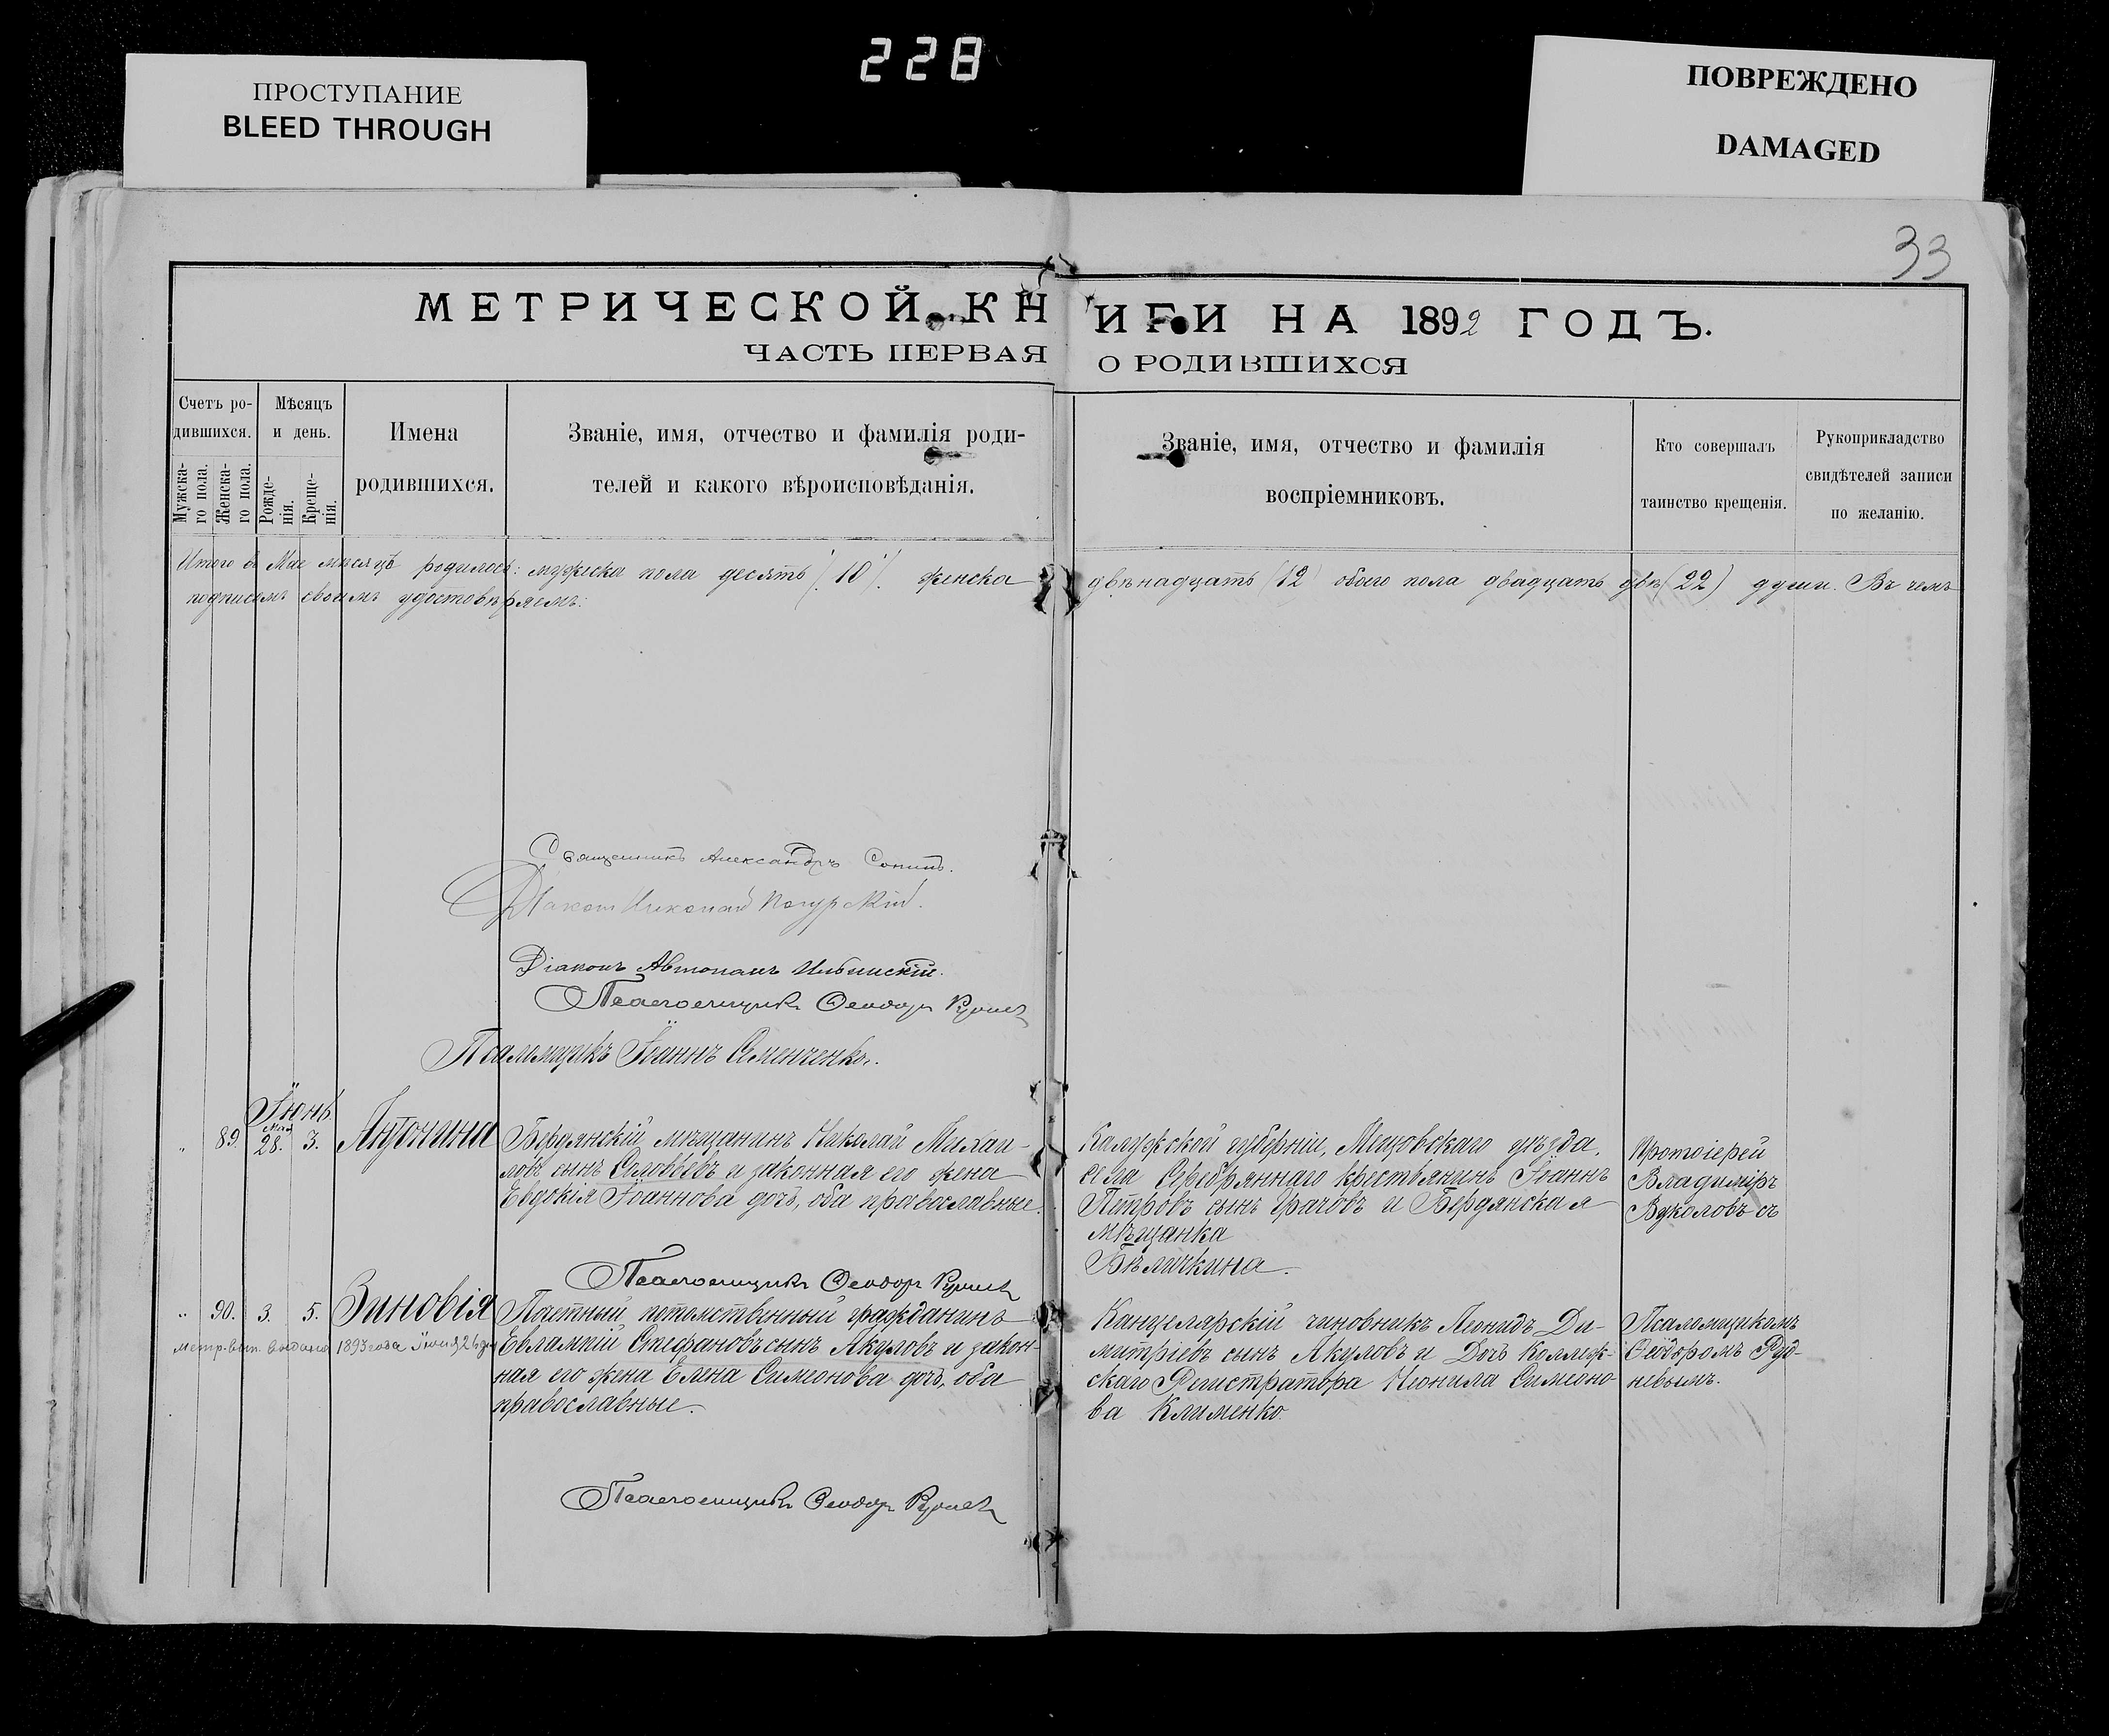 228
ПРОСТУПАНИЕ
BLEED THROUGH
ПОВРЕЖДЕНО
DAMAGED
33
МЕТРИЧЕСКОЙ КНИГИ НА 1892 ГОДЪ.
ЧАСТЬ ПЕРВАЯ О РОДИВШИХСЯ
Счетъ ро-
дившихся.
Мужска-
го пола.
Женска-
го пола.
Мѣсяцъ
и день.
Рожде-
нія.
Креще-
нія.
Имена
родившихся.
Званіе, имя, отчество и фамилія роди-
телей и какого вѣроисповѣданія.
Званіе, имя, отчество и фамилія
воспріемниковъ.
Кто совершалъ
таинство крещенія.
Рукоприкладство
свидѣтелей записи
по желанію.
Итого въ Маѣ мѣсяцѣ родилось: мужеска пола десять /10/. женска двѣнадцать (12) обоего пола двадцать двѣ (22) души. Въ чемъ
подписомъ своимъ удостовѣряемъ:
Священникъ Александръ
Діаконъ Николай
Діаконъ Автономъ Ильинскій.
Псаломщикъ Ѳеодоръ Рудневъ
Псаломщикъ Іоаннъ Семенченко.
Іюнь
„ 89. Мая 28. 3. Антонина
Бердянскій мѣщанинъ Николай Михаи-
ловъ сынъ Соловьевъ и законная его жена
Евдокія Іоаннова дочь, оба православные.
Калужской губерніи, Мещовскаго уѣзда,
села Серебрянаго крестьянинъ Іоаннъ
Петровъ сынъ Грачовъ и Бердянская
мѣщанка
Бѣличкина.
Протоіерей
Владиміръ
Вуколовъ съ
Псаломщикъ Ѳеодоръ Рудневъ
„ 90. 3. 5. Зиновія
метр. вып. выдана 1893 года Іюня 26 дня
Почтный потомственный гражданинъ
Евлампій Стефановъ сынъ Акуловъ и закон-
ная его жена Елена Симеонова дочь, оба
православные.
Канцелярскій чиновникъ Леонидъ Ди-
митріевъ сынъ Акуловъ и Дочь Коллеж-
скаго Регистратора Неонила Симеоно
ва Клименко.
Псаломщикомъ
Ѳеодоромъ Руд-
невымъ.
Псаломщикъ Ѳеодоръ Рудневъ